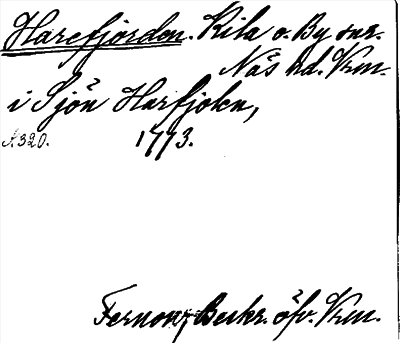 Harefjorden. Kila o. By snr.
Näs hd. Vrm.
i Sjön Harfjolen,
A.320. 1773.
Fernow, Beskr. öfv. Vrm.